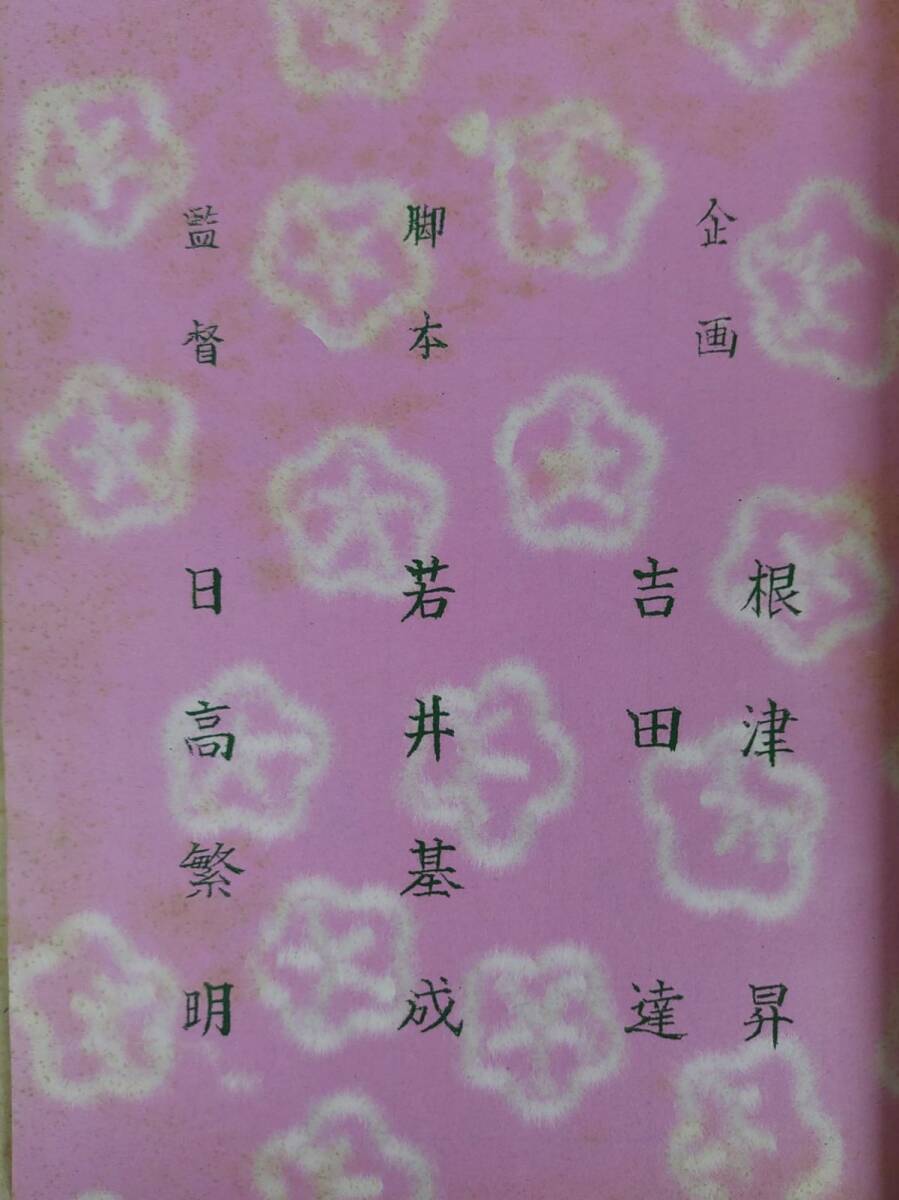 企画
根津昇
吉田達
脚本
若井基成
監督
日高繁明